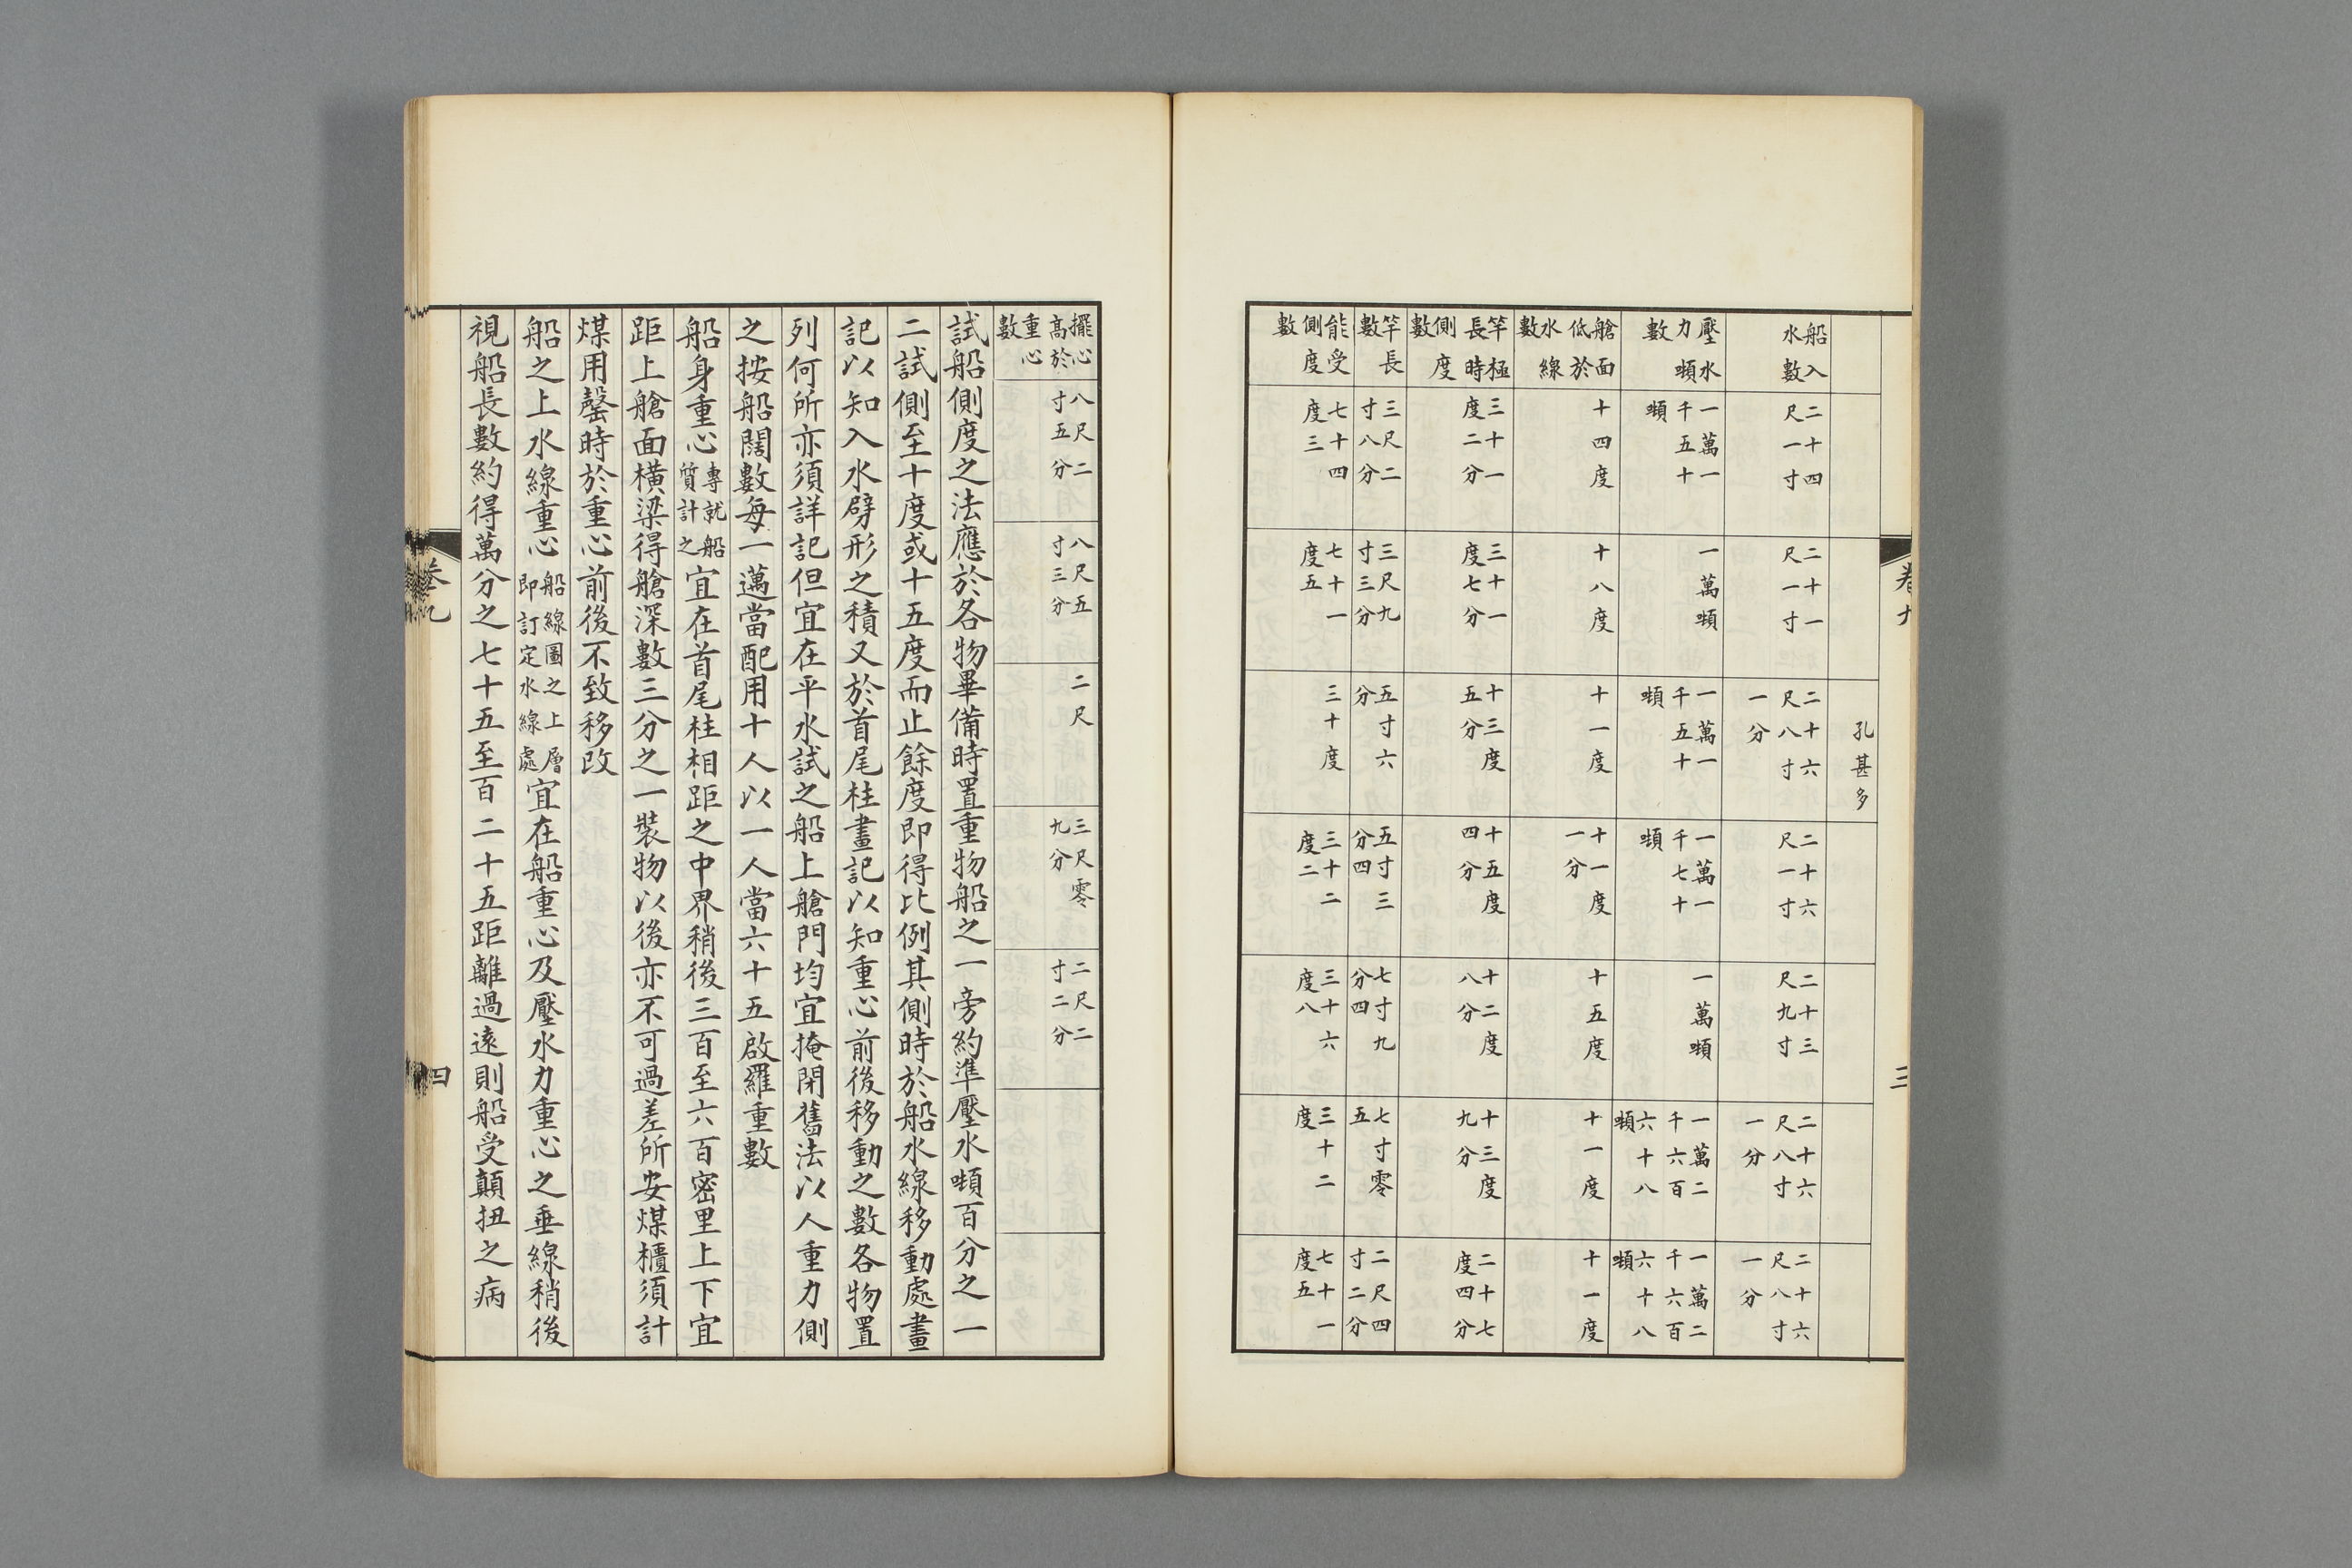 卷九 三
孔甚多
船入水數 二十四尺一寸 二十一尺一寸 二十六尺八寸一分 二十六尺一寸 二十三尺九寸 二十六尺八寸一分 二十六尺八寸一分
壓水力噸數 一萬一千五十噸 一萬噸 一萬一千五十噸 一萬一千七十噸 一萬噸 一萬二千六百六十八噸 一萬二千六百六十八噸
艙面低於水線數 十四度 十八度 十一度 十一度一分 十五度 十一度 十一度
竿極長時側度數 三十一度二分 三十一度七分 十三度五分 十五度四分 十二度八分 十三度九分 二十七度四分
竿長數 三尺二寸八分 三尺九寸三分 五寸六分 五寸三分四 七寸九分四 七寸零五 二尺四寸二分
能受側度數 七十四度三 七十一度五 三十度 三十二度二 三十六度八 三十二度 七十一度五
擺心高於重心數 八尺二寸五分 八尺五寸三分 二尺 三尺零九分 二尺二寸二分
試船側度之法應於各物畢備時置重物船之一旁約準壓水噸百分之一
二試側至十度或十五度而止餘度即得比例其側時於船水線移動處畫
記以知入水劈形之積又於首尾柱畫記以知重心前後移動之數各物置
列何所亦須詳記但宜在平水試之船上艙門均宜掩閉舊法以人重力側
之按船闊數每一邁當配用十人以一人當六十五啟羅重數
船身重心專就船質計之宜在首尾柱相距之中界稍後三百至六百密里上下宜
距上艙面橫梁得艙深數三分之一裝物以後亦不可過差所安煤櫃須計
煤用罄時於重心前後不致移改
船之上水線重心船線圖之上層即訂定水線處宜在船重心及壓水力重心之垂線稍後
視船長數約得萬分之七十五至百二十五距離過遠則船受顛扭之病
卷九 四